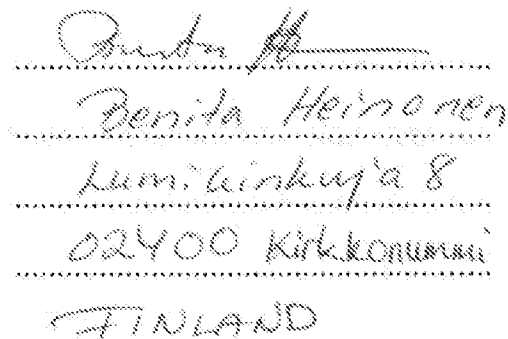 Benita Heinonen
Lumikinkuja 8
02400 Kirkkonummi
FINLAND